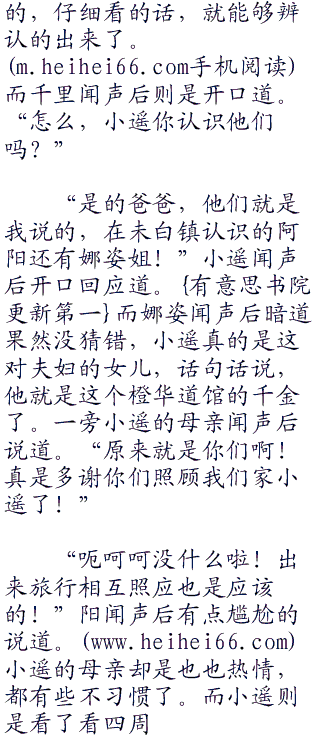 的，仔细看的话，就能够辨
认的出来了。
(m.heihei66.com手机阅读)
而千里闻声后则是开口道。
“怎么，小遥你认识他们
吗？”
“是的爸爸，他们就是
我说的，在未白镇认识的阿
阳还有娜姿姐！”小遥闻声
后开口回应道。{有意思书院
更新第一}而娜姿闻声后暗道
果然没猜错，小遥真的是这
对夫妇的女儿，话句话说，
他就是这个橙华道馆的千金
了。一旁小遥的母亲闻声后
说道。“原来就是你们啊！
真是多谢你们照顾我们家小
遥了！”
“呃呵呵没什么啦！出
来旅行相互照应也是应该
的！”阳闻声后有点尴尬的
说道。(www.heihei66.com)
小遥的母亲却是也也热情，
都有些不习惯了。而小遥则
是看了看四周